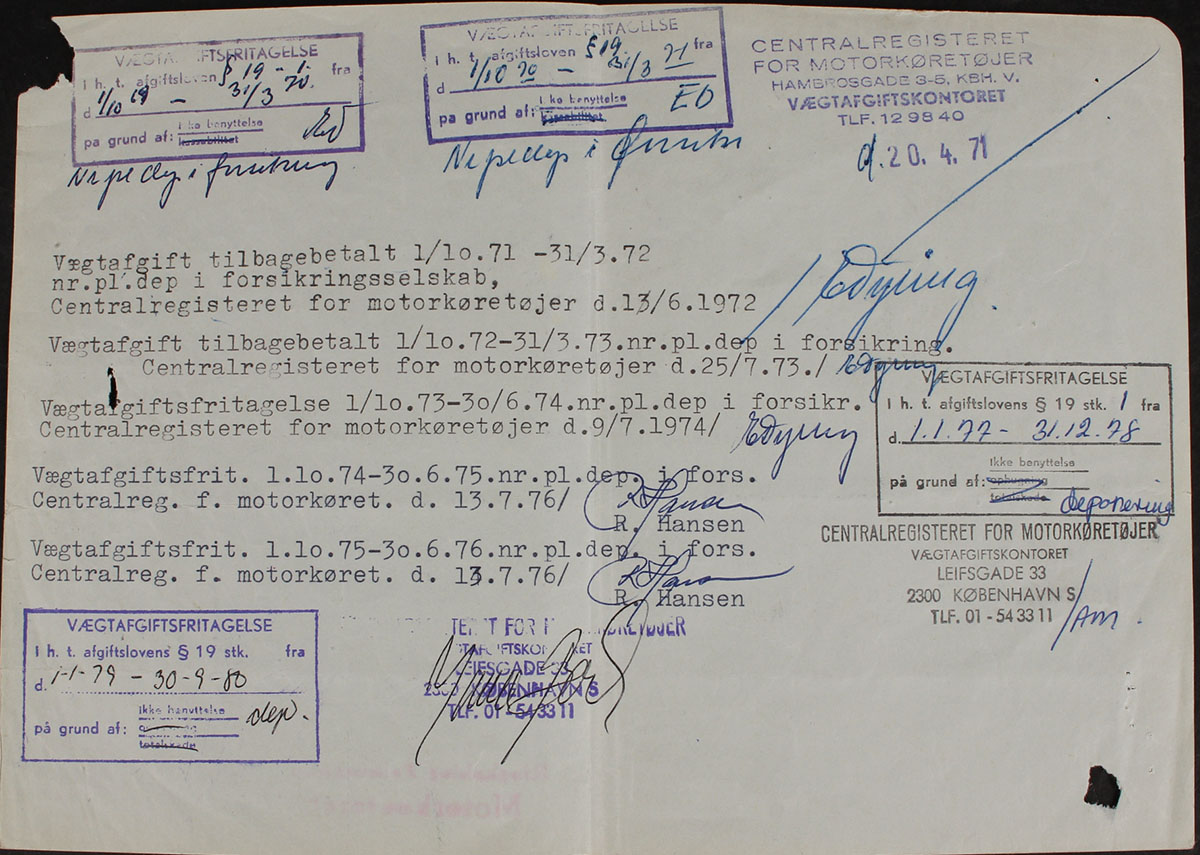 VÆGTAFGIFTSFRITAGELSE
I h. t. afgiftsloven § 19 - 1. fra
d 1/10 69 - 31/3 70.
på grund af: Ikke benyttelse
Nr pl dep i forsikring
VÆGTAFGIFTSFRITAGELSE
I h. t. afgiftsloven § 19 fra
d 1/10 70 - 31/3 71
på grund af: Ikke benyttelse
EO
Nr pl dep i
CENTRALREGISTERET
FOR MOTORKØRETØJER
HAMBROSGADE 3-5, KBH. V.
VÆGTAFGIFTSKONTORET
TLF. 12 98 40
d. 20. 4. 71
Vægtafgift tilbagebetalt 1/10.71 -31/3.72
nr.pl.dep i forsikringsselskab,
Centralregisteret for motorkøretøjer d.13/6.1972
Vægtafgift tilbagebetalt 1/10.72-31/3.73.nr.pl.dep i forsikring.
Centralregisteret for motorkøretøjer d.25/7.73./
Vægtafgiftsfritagelse 1/10.73-30/6.74.nr.pl.dep i forsikr.
Centralregisteret for motorkøretøjer d.9/7.1974/
Vægtafgiftsfrit. 1.10.74-30.6.75.nr.pl.dep. i fors.
Centralreg. f. motorkøret. d. 13.7.76/
R. Hansen
Vægtafgiftsfrit. 1.10.75-30.6.76.nr.pl.dep. i fors.
Centralreg. f. motorkøret. d. 13.7.76/
R. Hansen
VÆGTAFGIFTSFRITAGELSE
I h. t. afgiftslovens § 19 stk. 1 fra
d. 1.1.77 - 31.12.78
Ikke benyttelse
på grund af: ophugning
totalskade deponering
CENTRALREGISTERET FOR MOTORKØRETØJER
VÆGTAFGIFTSKONTORET
LEIFSGADE 33
2300 KØBENHAVN S
TLF. 01 - 54 33 11 /AM.
VÆGTAFGIFTSFRITAGELSE
I h. t. afgiftslovens § 19 stk. fra
d. 1-1-79 - 30-9-80
Ikke benyttelse
på grund af: dep.
totalskade
LEIFSGADE 33
2300 KØBENHAVN S
TLF. 01 - 54 33 11